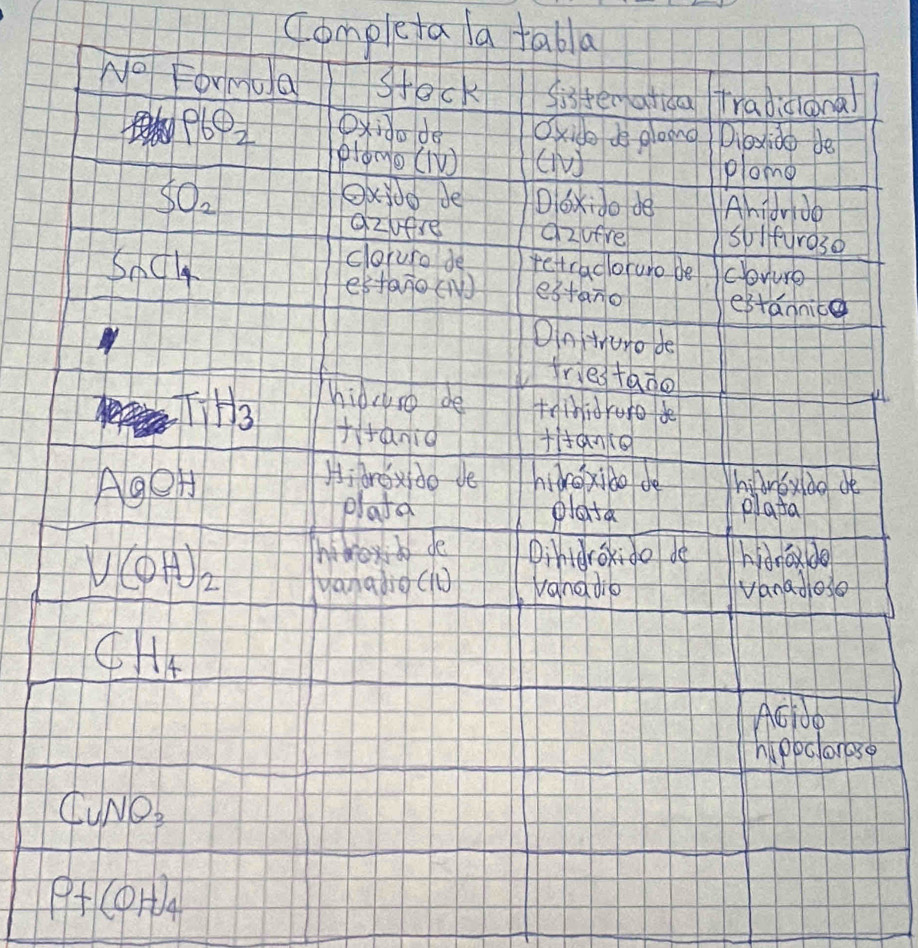 Completa la tabla
Nº Formula Stock Sistematica Tradicional
PbO2 Oxido de plomo (IV) Oxido de plomo (IV) Dioxido de plomo
SO2 Oxido de azufre Dióxido de azufre Ahídrido sulfuroso
SnCl4 cloruro de estaño (IV) tetracloruro de estaño cloruro estánnico
Dinitruro de triestaño
TiH3 hidruro de titanio trihidruro de titanio
AgOH Hidróxido de plata hidróxido de plata hidróxido de plata
V(OH)2 hidroxido de vanadio (IV) Dihidróxido de vanadio hidróxido vanadioso
CH4
Acido hipocloroso
CuNO3
Pt(OH)4